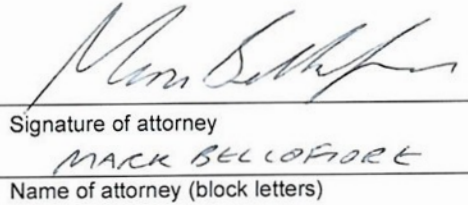 Signature of attorney
MARK BELLOFIORE
Name of attorney (block letters)